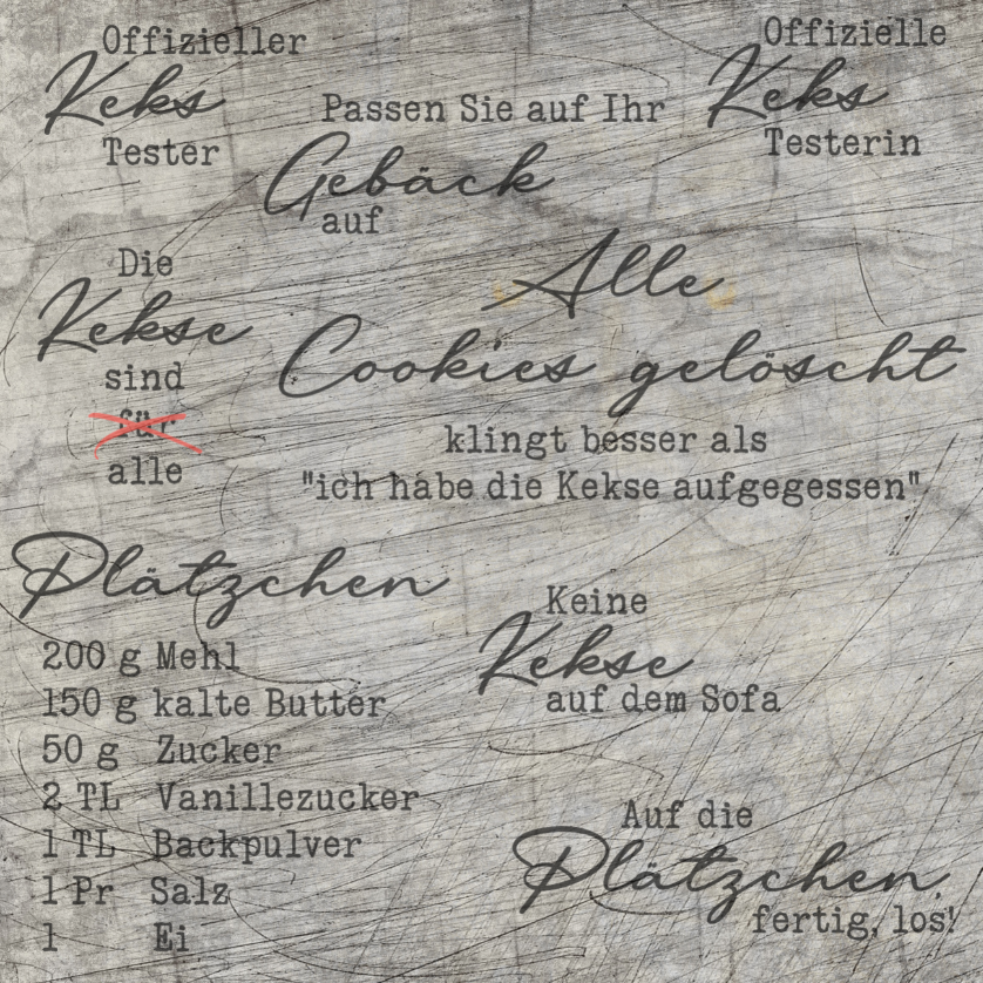 Offizieller
Keks
Tester
Passen Sie auf Ihr
Gebäck
auf
Offizielle
Keks
Testerin
Die
Kekse
sind
für
alle
Alle
Cookies gelöscht
klingt besser als
"ich habe die Kekse aufgegessen"
Plätzchen
200 g Mehl
150 g kalte Butter
50 g Zucker
2 TL Vanillezucker
1 TL Backpulver
1 Pr Salz
1 Ei
Keine
Kekse
auf dem Sofa
Auf die
Plätzchen,
fertig, los!